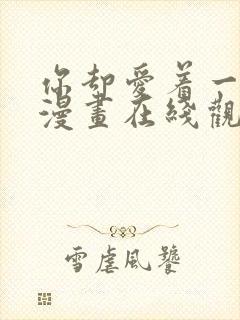 你却愛着一
漫畫在綫觀
雪虐風饕